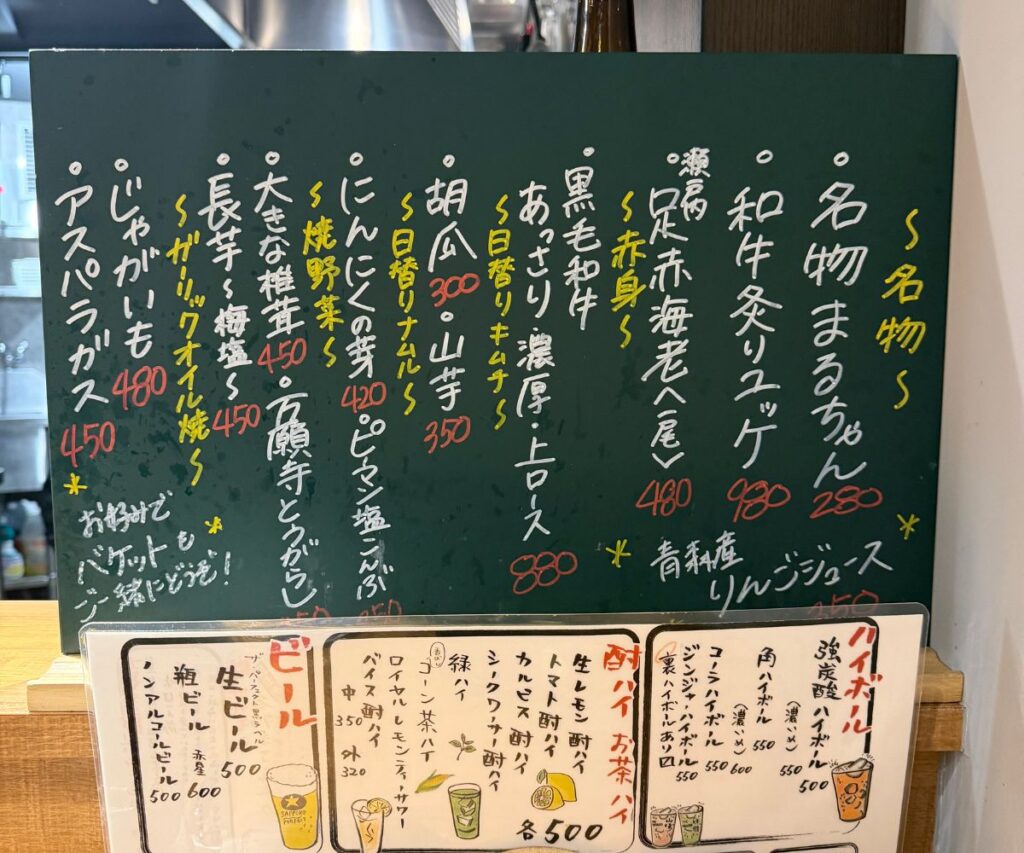 ～名物～
○名物まるちゃん 280
○和牛炙りユッケ 980
～赤身～
○瀬戸内
足赤海老へ一尾〉 480
○黒毛和牛
あっさり・濃厚・上ロース 880
～日替りキムチ～
○胡瓜 300 ・山芋 350
～日替りナムル～
○にんにくの芽 420 ○ピーマン塩こんぶ
～焼野菜～
○大きな椎茸 450 ・万願寺とうがらし
○長芋～梅塩～ 450
～ガーリックオイル焼～
○じゃがいも 480
○アスパラガス 450
*青森産
りんごジュース
*
*お好みで
バケットも
ご一緒にどうぞ！
*
ハイボール
強炭酸ハイボール 500
（濃いめ） 550
角ハイボール 550
（濃いめ） 600
コーラハイボール 550
ジンジャーハイボール 550
裏ハイボールあり〼
酎ハイ お茶ハイ
生レモン酎ハイ
トマト酎ハイ
カルピス酎ハイ
シークワーサー酎ハイ
緑ハイ
コーン茶ハイ
ロイヤルレモンティーサワー
バイス酎ハイ
中 350 外 320
各500
ビール
生ビール 500
瓶ビール 赤星 600
ノンアルコールビール 500
SAPPORO